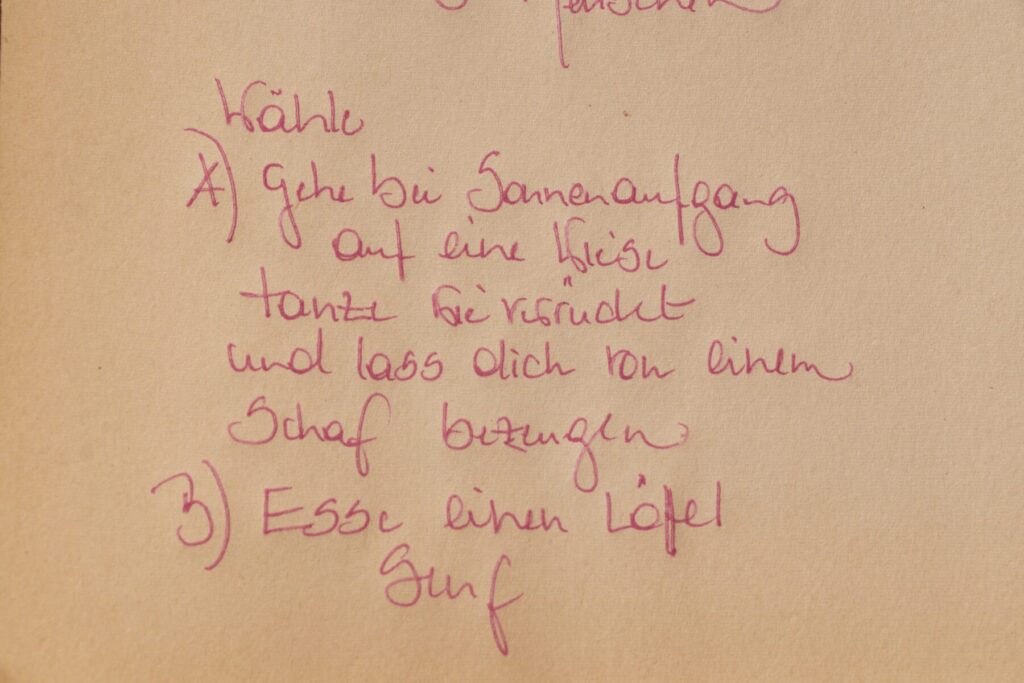 Menschen
Wähle
A) Gehe bei Sonnenaufgang
auf eine Wiese
tanze wie verrückt
und lass dich von einem
Schaf bezeugen
B) Esse einen Löffel
Senf